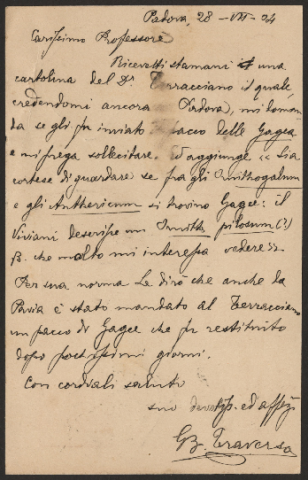 Padova, 28 - VII - 04
Carissimo Professore
Ricevetti stamani una
cartolina del Dr Terracciano il quale
credendomi ancora Padova, mi doman-
da se gli fu inviato pacco delle Gagea
e mi prega sollecitare. Ed aggiunge << Sia
cortese di guardare se fra gli Ornithogalum
e gli Anthericum si trovino Gagee: il
Viviani descrisse un Ornith. pilosum (?)
B. che molto mi interessa vedere >>.
Per sua norma Le dirò che anche da
Pavia è stato mandato al Terracciano
un pacco di Gagee che fu restituito
dopo pochissimi giorni.
Con cordiali saluti
suo devotiss. ed affez.
GB. Traverso